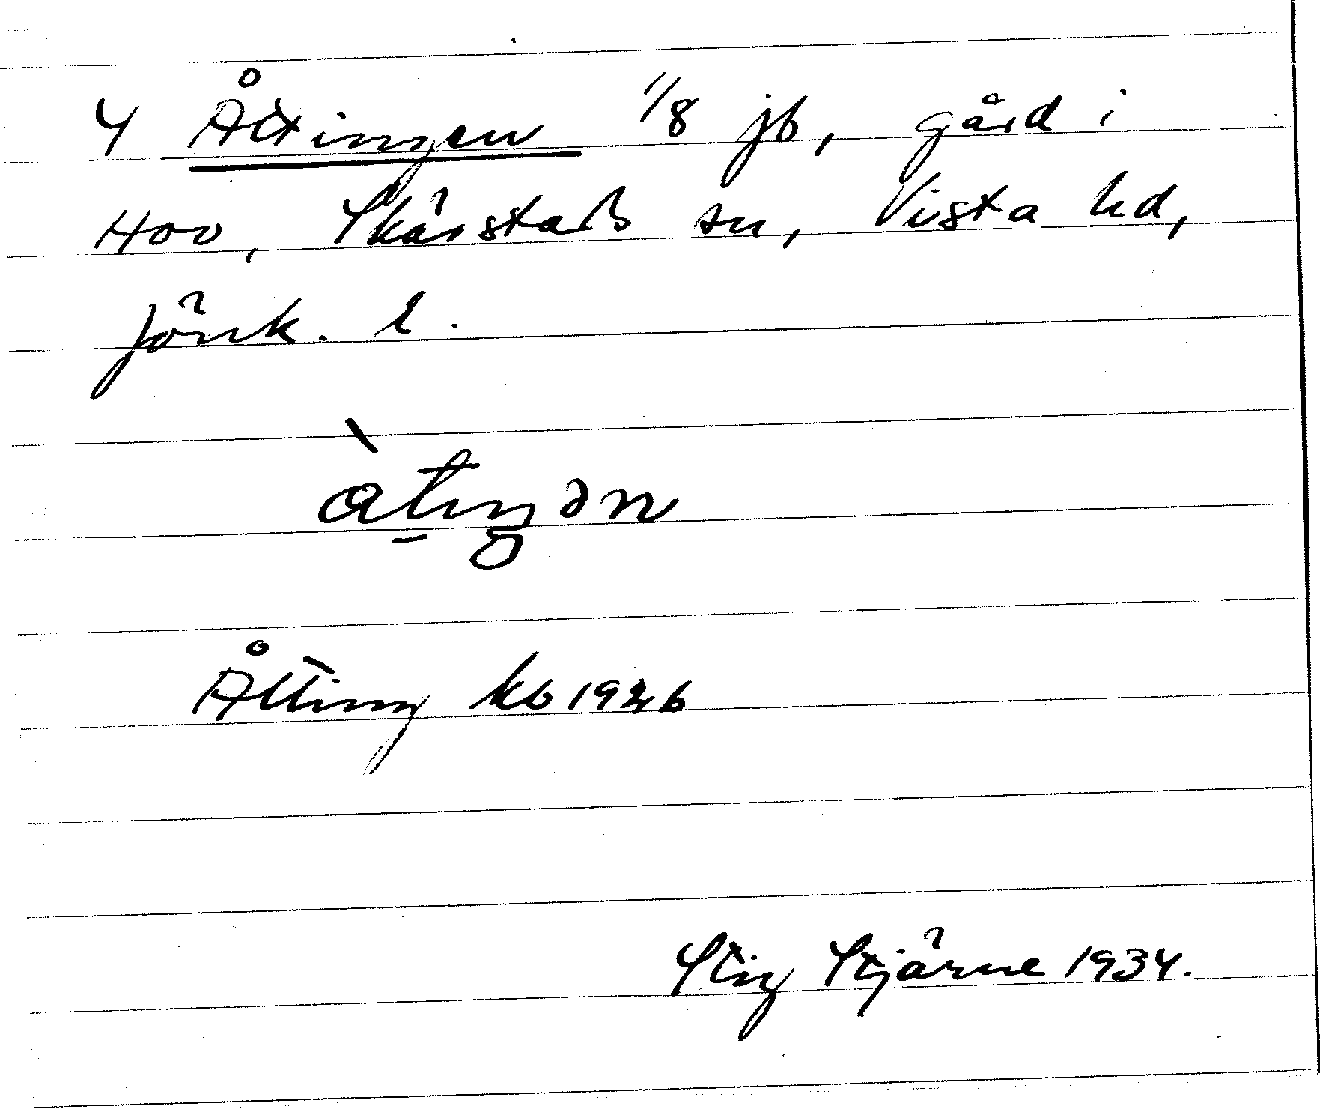 4 Åttingen 1/8 jb, gård i
Hov, Skärstads sn, Vista hd,
Jönk. l.
Åtting kb 1926
Stig Stjärne 1934.